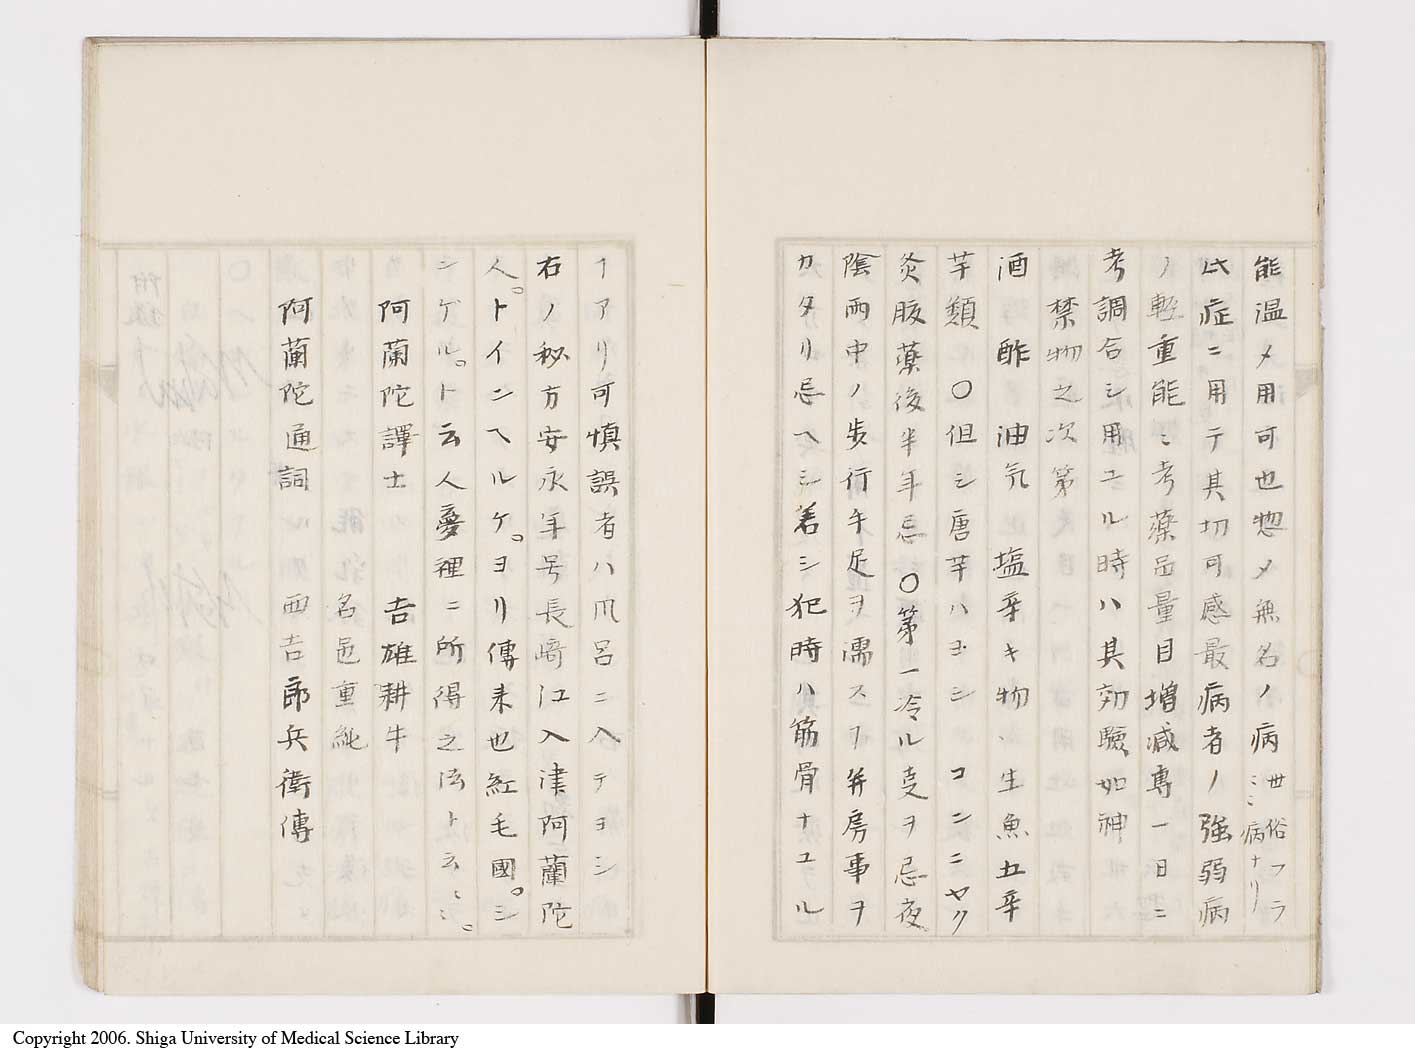 能温メ用可也惣メ無名ノ病世俗フラ
ミミ病ナリ
此症ニ用テ其切可感最病者ノ強弱病
ノ軽重能ミ考薬品量目増減専一日ニ
考調合シ用ユル時ハ其効驗如神
禁物之次第
酒 酢 油気 塩辛キ物、生魚五辛
芋類 〇但シ唐芋ハヨシ コンニヤク
灸服薬後半年忌 〇第一冷ル㕝ヲ忌夜
陰雨中ノ歩行手足ヲ濡スヿ并房事ヲ
カタリ忌ヘシ若シ犯時ハ筋骨ナユル
ヿアリ可慎誤者ハ風呂ニ入テヨシ
右ノ秘方安永年号長崎江入津阿蘭陀
人。トインヘルケ。ヨリ傳来也紅毛國。シ
ンケル。ト云人夢裡ニ所得之法ト云ミ。
阿蘭陀譯士 吉雄耕牛
名邑重純
阿蘭陀通詞 西吉郎兵衛傳
Copyright 2006. Shiga University of Medical Science Library